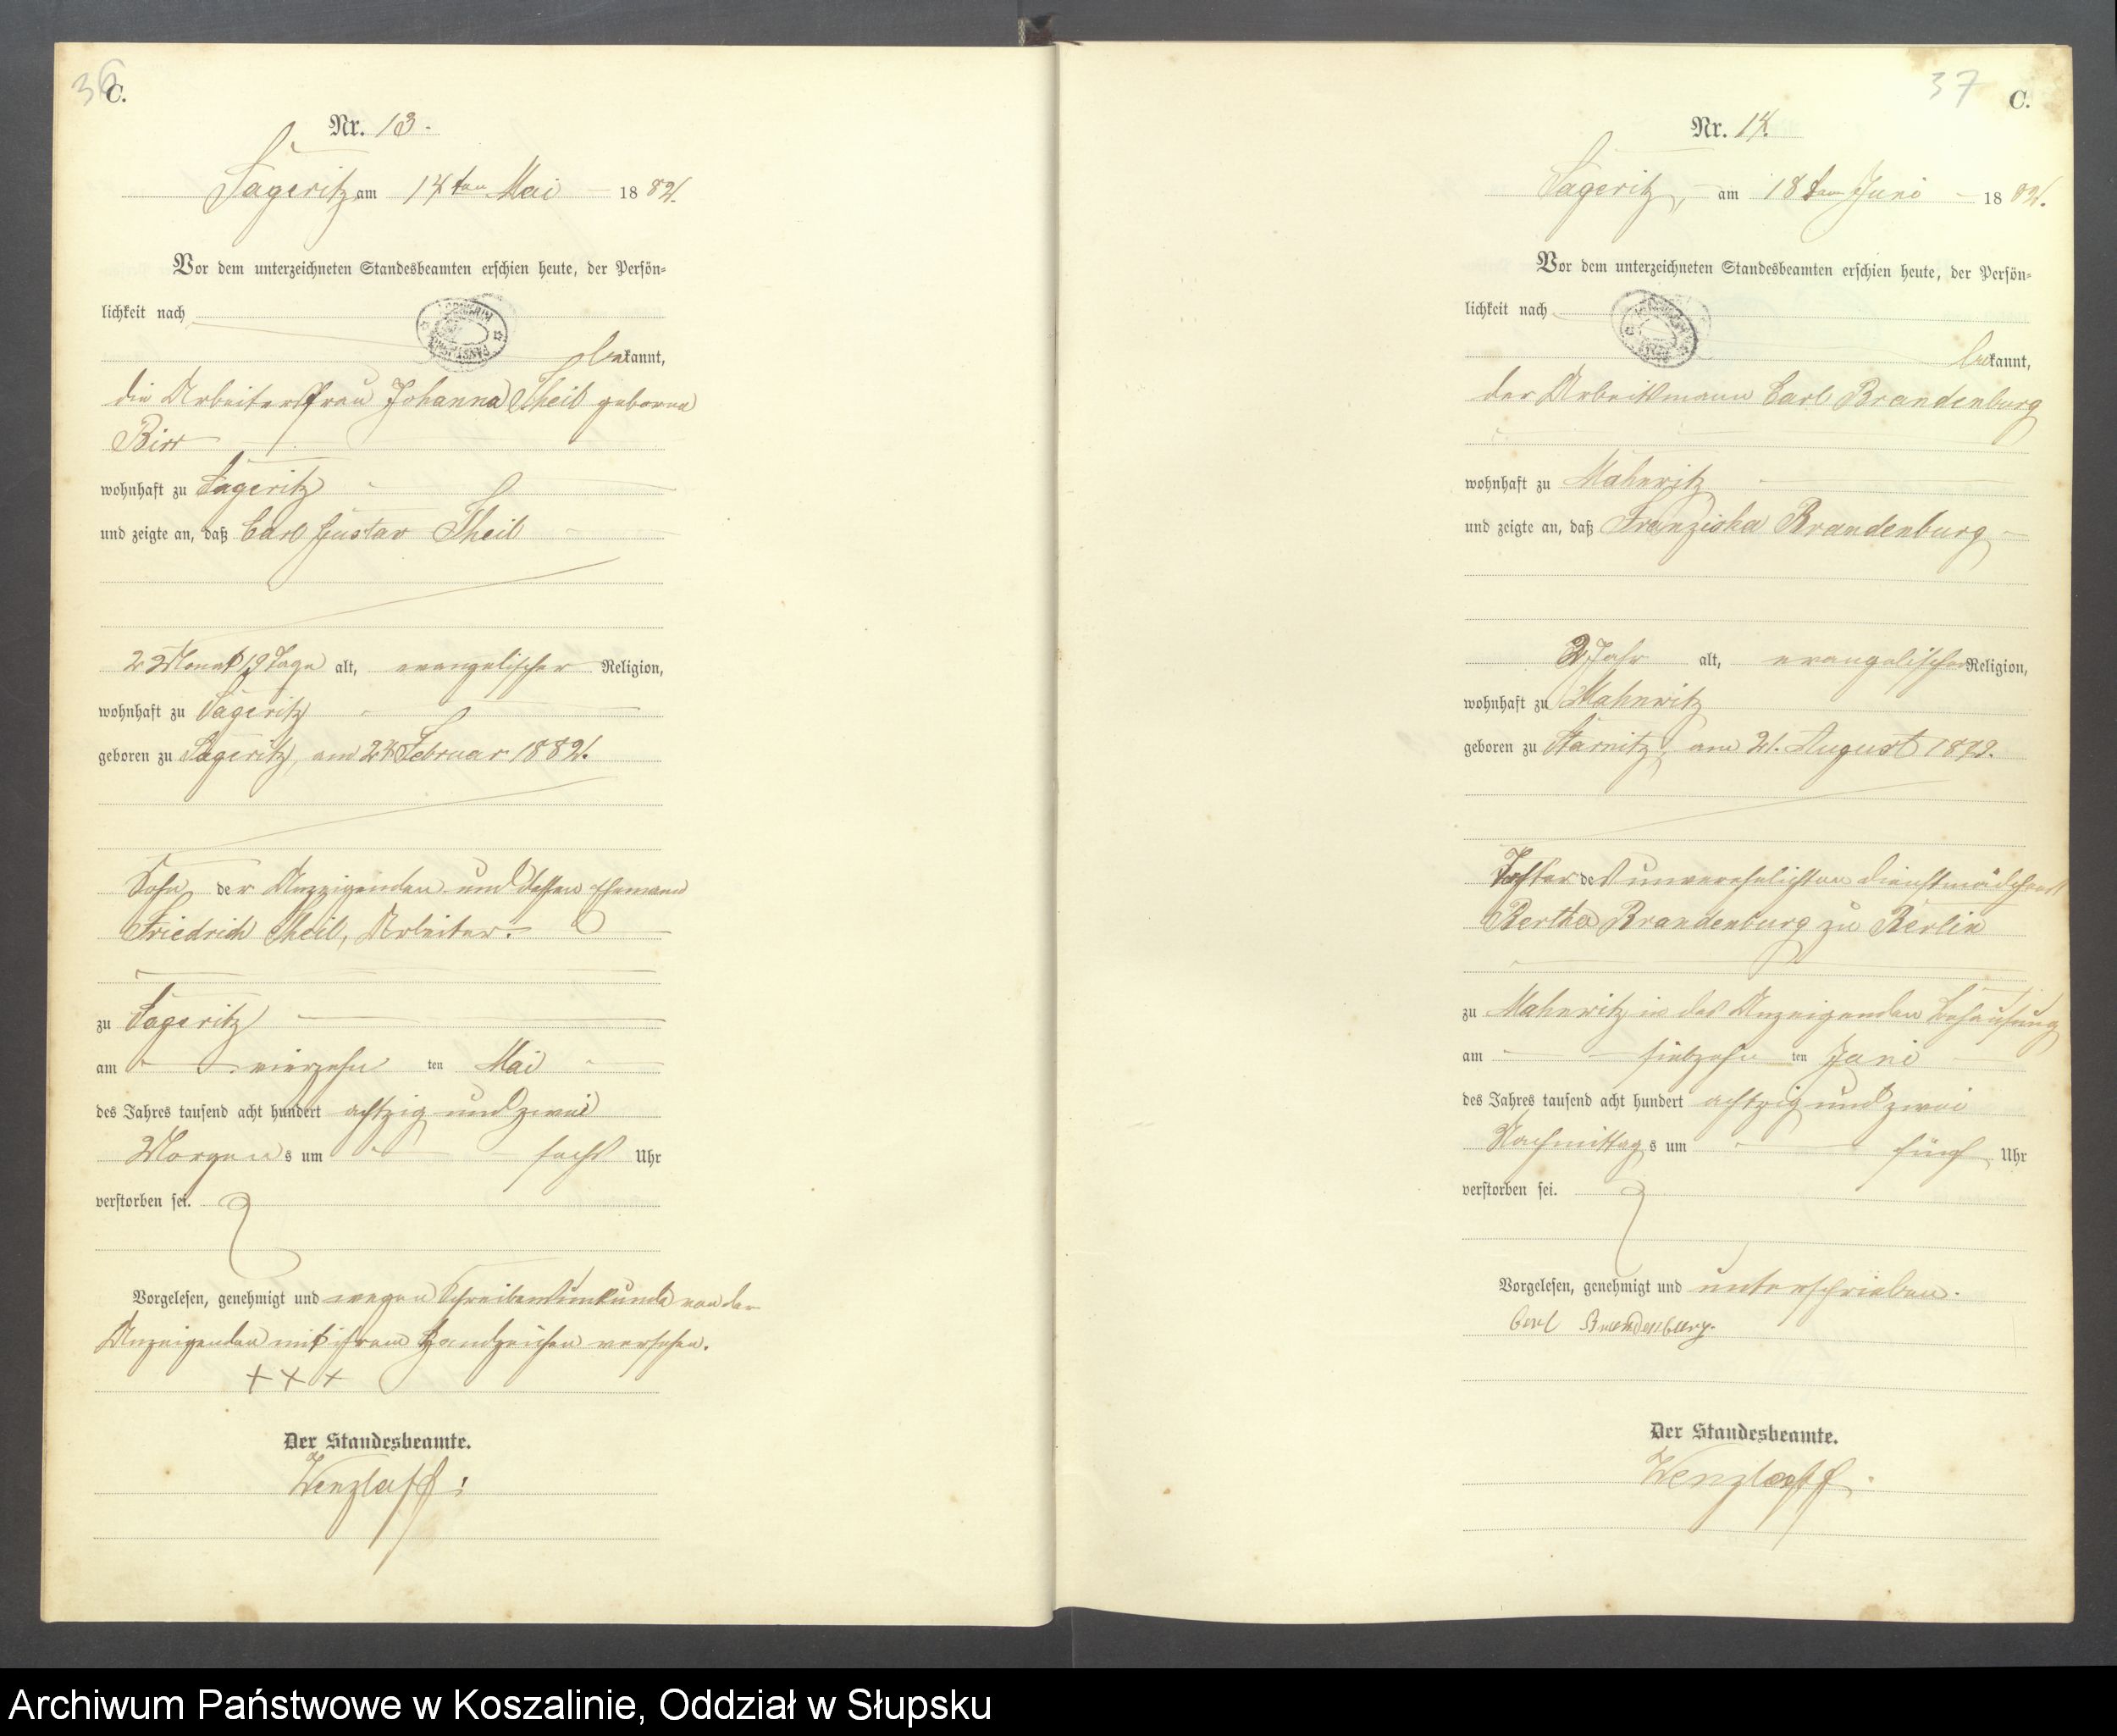 36
C.
Nr. 13.
Sageritz am 14ten Mai 1882.
Vor dem unterzeichneten Standesbeamten erschien heute, der Persön-
lichkeit nach
bekannt,
die Arbeiterfrau Johanna Theil geborne
Birr
wohnhaft zu Sageritz
und zeigte an, daß Carl Gustav Theil
2 Monat 19 Tage alt, evangelischer Religion,
wohnhaft zu Sageritz
geboren zu Sageritz, am 24 Februar 1882.
Sohn der Anzeigenden und dessen Ehemann
Friedrich Theil, Arbeiter.
zu Sageritz
am vierzehn ten Mai
des Jahres tausend acht hundert achtzig und zwei
Morgens um sechs Uhr
verstorben sei.
Vorgelesen, genehmigt und wegen Schreibensunkunde von der
Anzeigenden mit ihrem Handzeichen versehen.
+++
Der Standesbeamte.
Wenzlaff.
37
C.
Nr. 14.
Sageritz, am 18ten Juni 1882.
Vor dem unterzeichneten Standesbeamten erschien heute, der Persön-
lichkeit nach
bekannt,
der Arbeitsmann Carl Brandenburg
wohnhaft zu Mahnwitz
und zeigte an, daß Franziska Brandenburg
2 Jahr alt, evangelischer Religion,
wohnhaft zu Mahnwitz
geboren zu Starnitz, am 21. August 1879.
Tochter des unverehelichten Dienstmädchens
Bertha Brandenburg zu Berlin
zu Mahnwitz in des Anzeigenden Behausung
am siebzehn ten Juni
des Jahres tausend acht hundert achtzig und zwei
Nachmittags um fünf Uhr
verstorben sei.
Vorgelesen, genehmigt und unterschrieben.
Carl Brandenburg.
Der Standesbeamte.
Wenzlaff.
Archiwum Państwowe w Koszalinie, Oddział w Słupsku